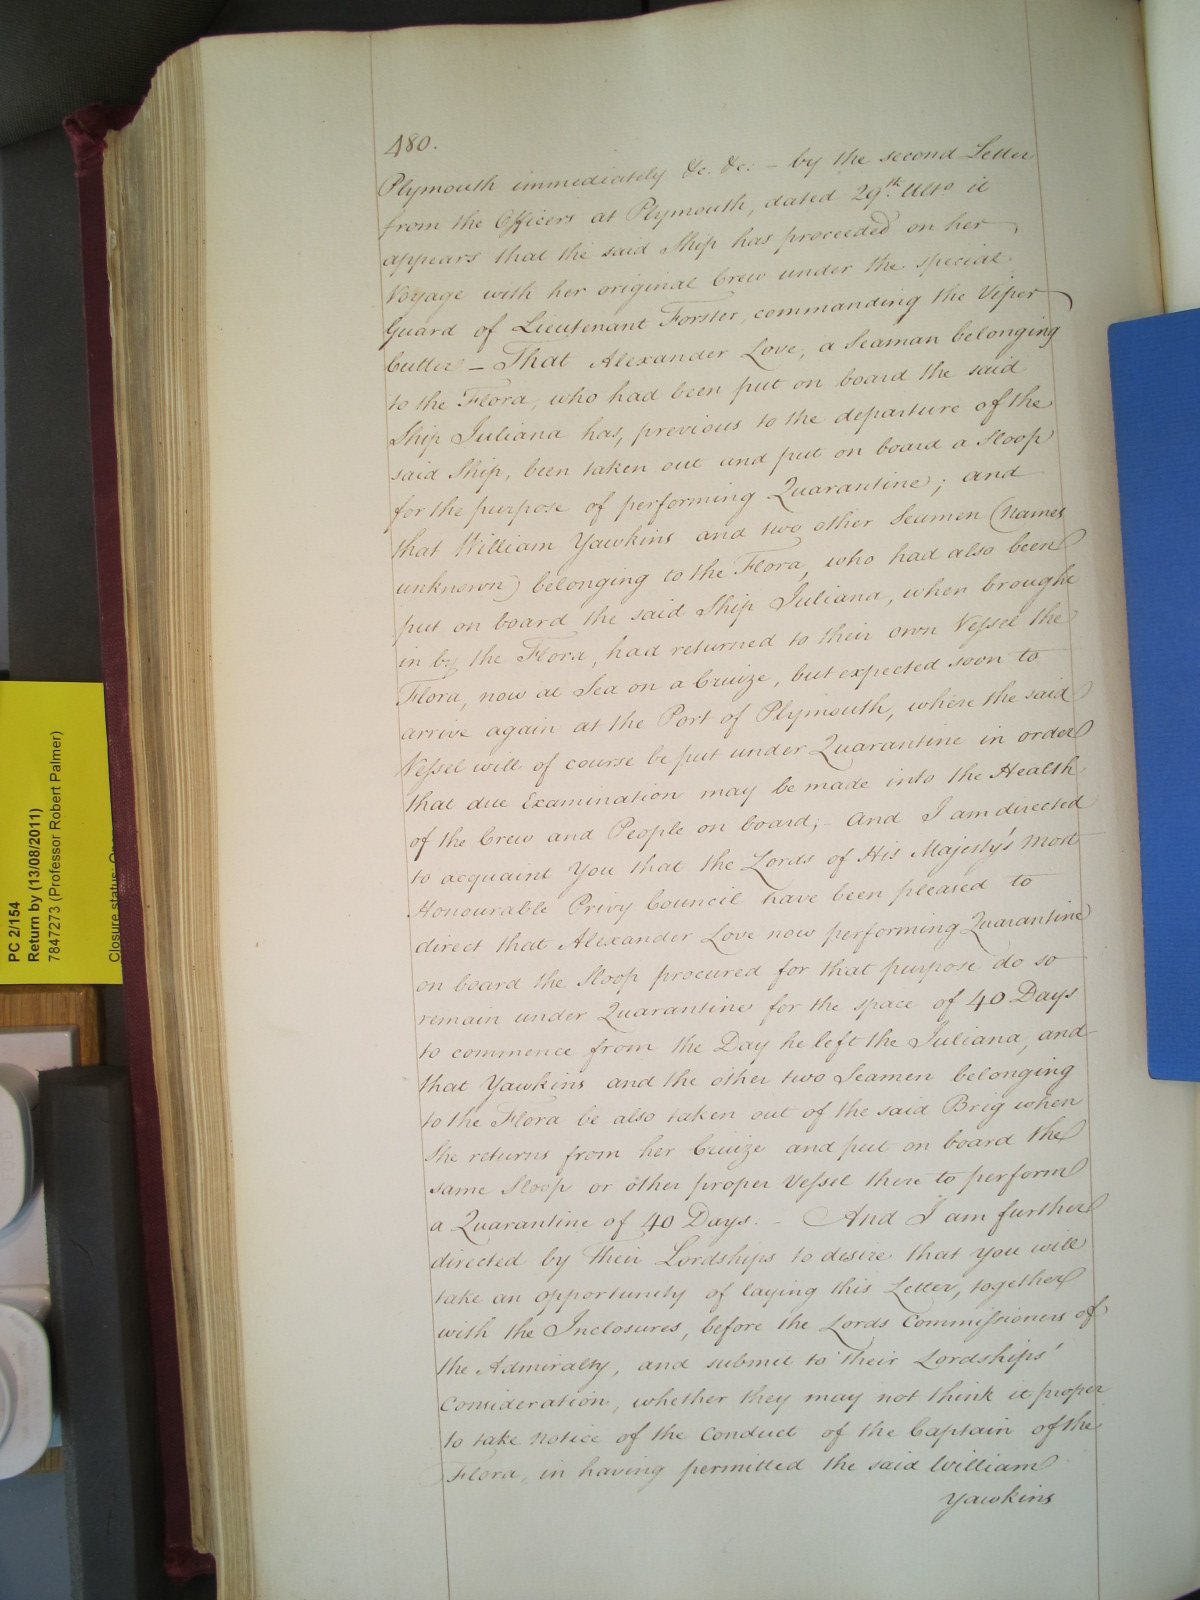 480.
Plymouth immediately &c. &c: – by the second Letter
from the Officers at Plymouth, dated 29th. Ulto it
appears that the said Ship has proceeded on her
Voyage with her original Crew under the special
Guard of Lieutenant Forster, commanding the Viper
Cutter – That Alexander Love, a Seaman belonging
to the Flora, who had been put on board the said
Ship Juliana has, previous to the departure of the
said Ship, been taken out and put on board a Sloop
for the purpose of performing Quarantine; and
that William Yawkins and two other Seamen (Names
unknown) belonging to the Flora, who had also been
put on board the said Ship Juliana, when brought
in by the Flora, had returned to their own Vessel the
Flora, now at Sea on a Cruize, but expected soon to
arrive again at the Port of Plymouth, where the said
Vessel will of course be put under Quarantine in order
that due Examination may be made into the Health
of the Crew and People on board; – And I am directed
to acquaint You that the Lords of His Majesty's most
Honourable Privy Council have been pleased to
direct that Alexander Love now performing Quarantine
on board the Sloop procured for that purpose do so
remain under Quarantine for the space of 40 Days
to commence from the Day he left the Juliana, and
that Yawkins and the other two Seamen belonging
to the Flora be also taken out of the said Brig when
She returns from her Cruize and put on board the
same Sloop or other proper Vessel there to perform
a Quarantine of 40 Days. – And I am further
directed by Their Lordships to desire that you will
take an opportunity of laying this Letter, together
with the Inclosures, before the Lords Commissioners of
the Admiralty, and submit to their Lordships'
Consideration, whether they may not think it proper
to take Notice of the Conduct of the Captain of the
Flora, in having permitted the said William
Yawkins
PC 2/154
Return by (13/08/2011)
7847273 (Professor Robert Palmer)
Closure status: